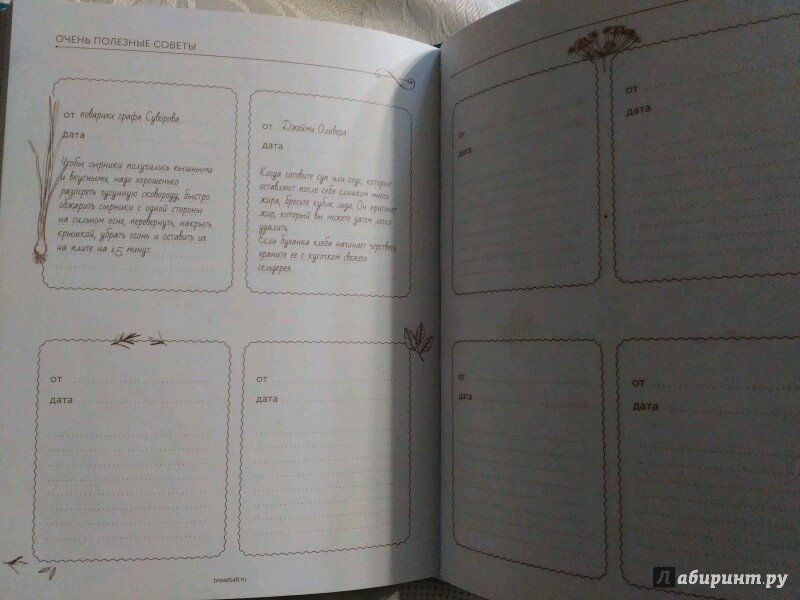 ОЧЕНЬ ПОЛЕЗНЫЕ СОВЕТЫ
от поварихи графа Суворова
дата
Чтобы сырники получились пышными
и вкусными, надо хорошенько
разогреть чугунную сковороду, быстро
обжарить сырники с одной стороны
на сильном огне, перевернуть, накрыть
крышкой, убрать огонь и оставить их
на плите на 15 минут.
от Джейми Оливера
дата
Когда готовите суп или соус, которые
оставляют после себя слишком много
жира, бросьте кубик льда. Он притянет
жир, который вы можете затем легко
удалить.
Если буханка хлеба начинает черстветь,
храните ее с кусочком свежего
сельдерея.
от
дата
от
дата
breadsalt.ru
от
дата
от
дата
от
дата
от
дата
Лабиринт.ру